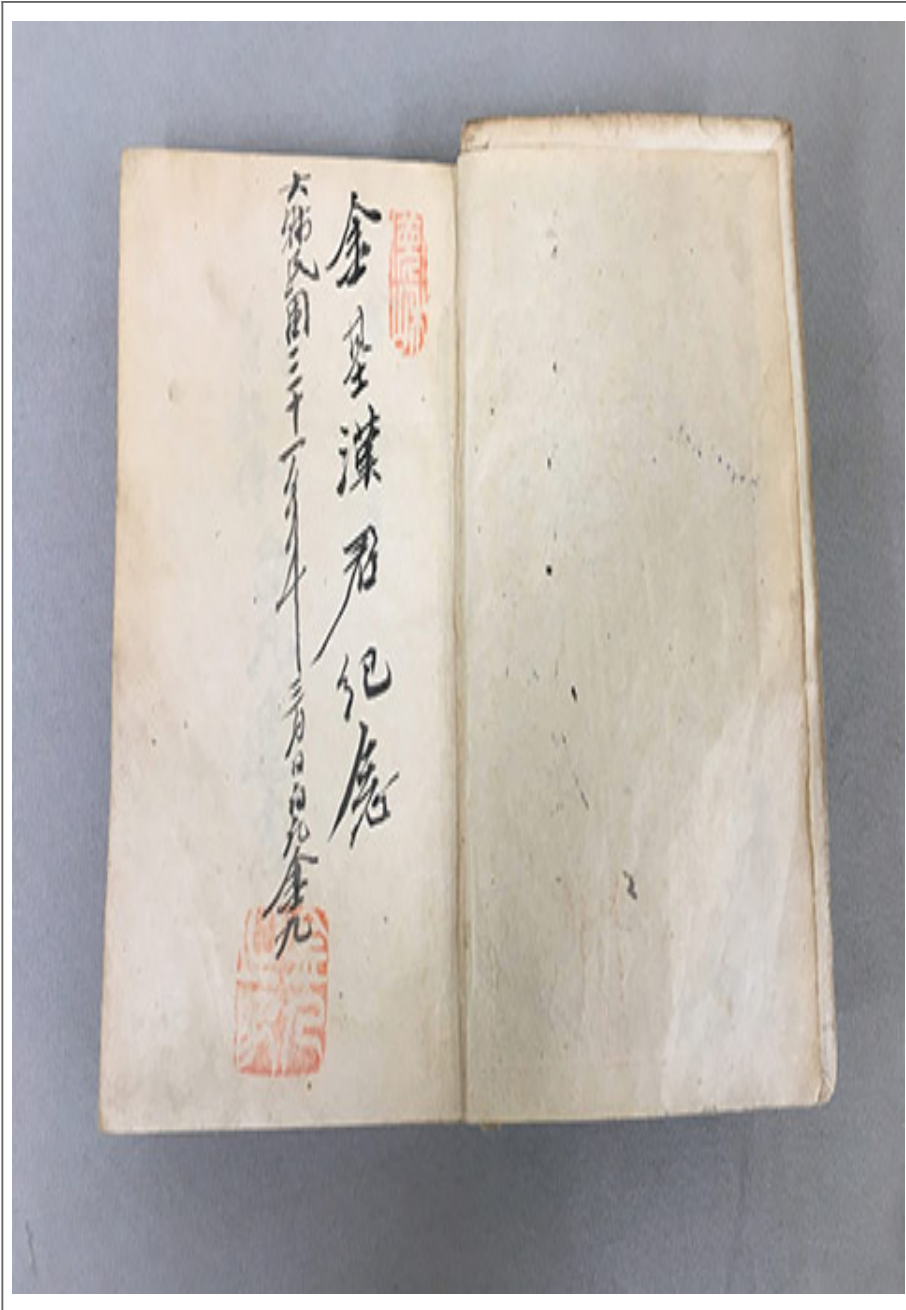 金基漢君紀念
大韓民國三十一年三月日白凡金九